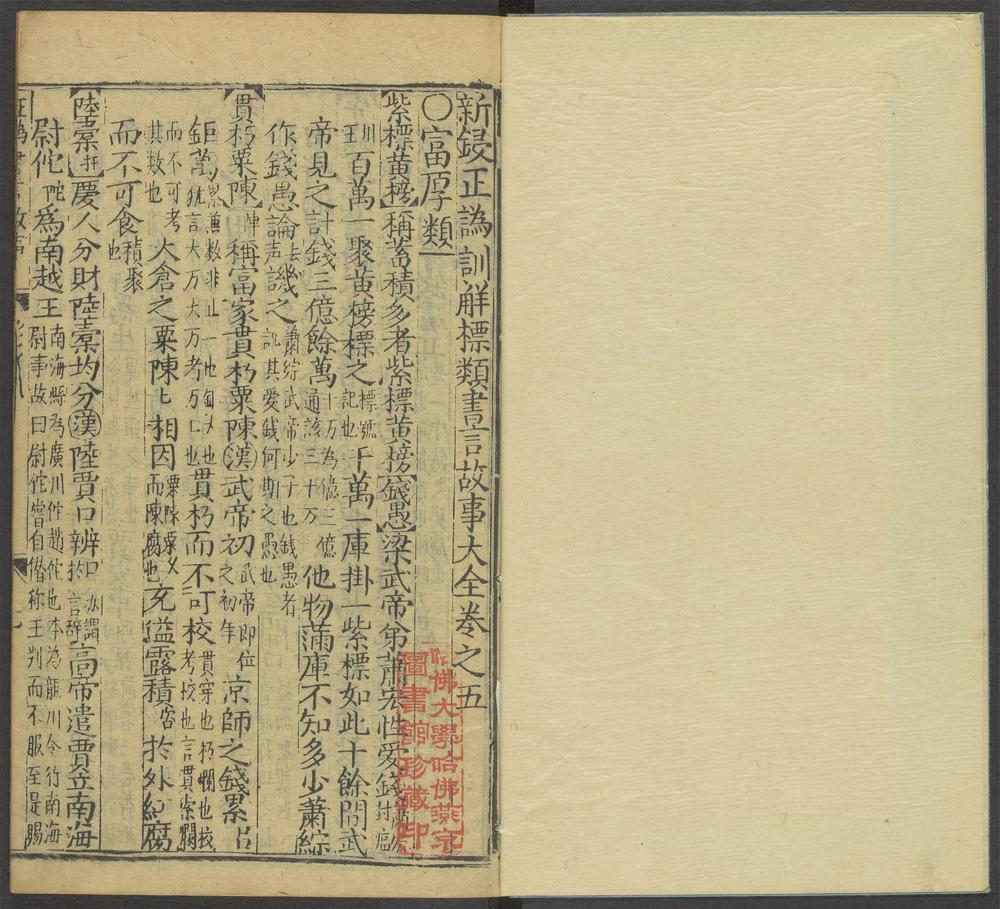 新鋟正譌訓觧標類書言故事大全卷之五
○富厚類
紫標黃榜 稱蓄積多者紫標黃榜 錢愚 梁武帝弟蕭宏性愛錢
封臨川王 百萬一聚黃榜標之 標號記也 千萬一庫掛一紫標如此十餘間武
帝見之計錢三億餘萬 十万為億三億通該三十万 他物滿庫不知多少蕭綜
作錢愚論 去声 譏之 蕭綜武帝少子也錢愚者訊其愛錢何期之愚也
貫朽粟陳 陣 稱富家貫朽粟陳 漢 武帝初 武帝即位之初年 京師之錢累
鉅萬 猶言大万大万考万乚也 貫朽而不可校 貫穿也朽爛也校考校也言貫索爛
而不可考其数也 大倉之粟陳乚相因 粟陳粟又而陳腐也 充溢露積 於外紅腐
而不可食 積聚也
陸橐 托 慶人分財陸橐均分 漢 陸賈口辨 於言辞 高帝遣賈立南海
尉佗 陀 為南越王 南海縣為廣川佗趙佗也本為龍川令行南海尉事故曰尉佗嘗自僭称王判而不服至是賜
哈佛大學哈佛燕京
圖書館珍藏印